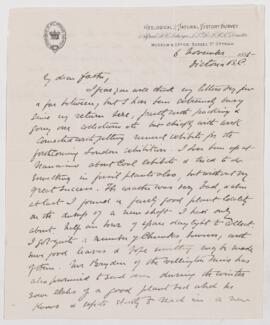 GEOLOGICAL & NATURAL HISTORY SURVEY
MUSEUM & OFFICE, SUSSEX ST OTTAWA
6 November
Victoria B.C.
My dear Father,
I fear you will think my letters very few
& far between, but I have been extremely busy
since my return here, partly with packing &
going over collections etc but chiefly with work
connected with getting mineral exhibits for the
forthcoming London exhibition. I have been up at
Nanaimo about Coal exhibits & tried to do
something in fossil plants also, but without very
great success. The weather was very bad, & when
at last I found a fairly good plant locality
on the dump of a new shaft I had only
about half an hour of spare daylight to collect.
I got quite a number of Chunks however, with
some good leaves & I hope something may be made
of them. Mr Bryden of the Wellington Mines has
also promised to send some during the winter
some slabs of a good plant bed which he
knows & expects shortly to reach in a new